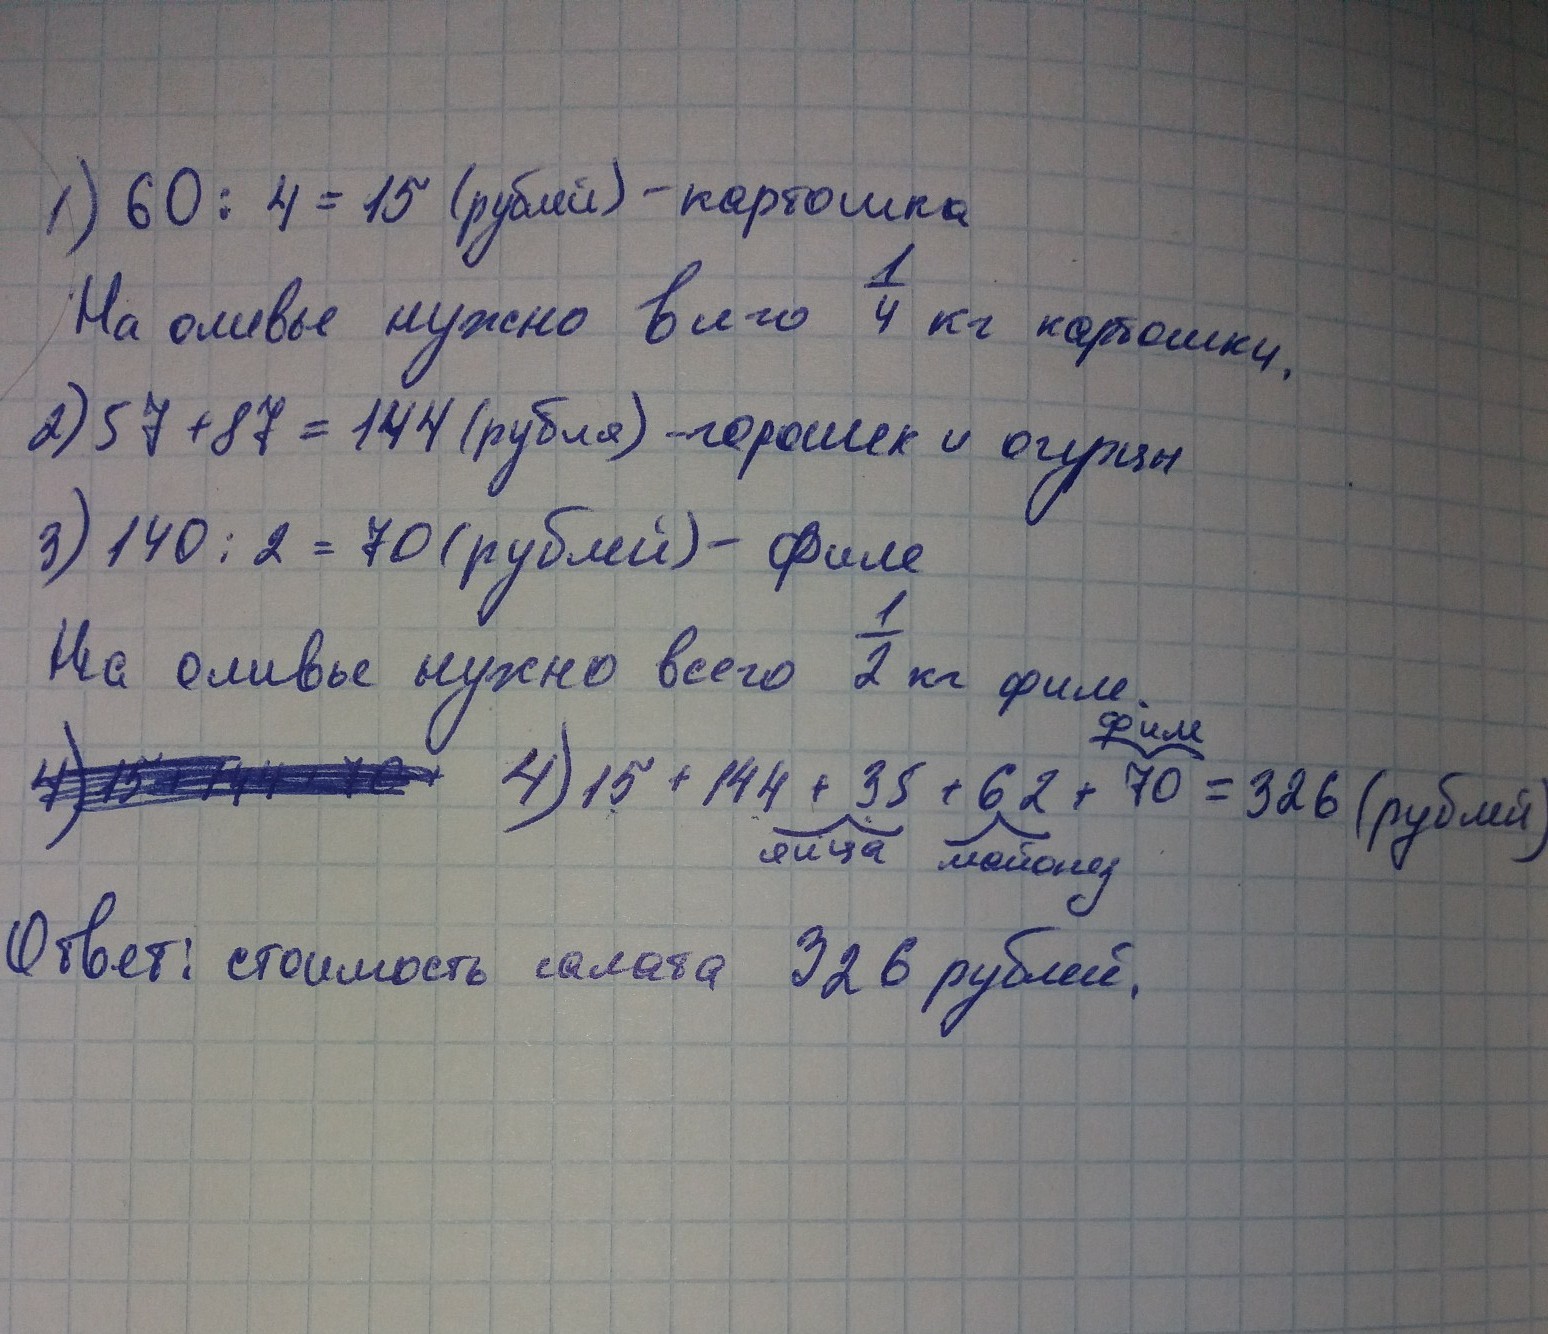 1) 60 : 4 = 15 (рублей) - картошка
На оливье нужно всего 1/4 кг картошки.
2) 57 + 87 = 144 (рубля) - горошек и огурцы
3) 140 : 2 = 70 (рублей) - филе
На оливье нужно всего 1/2 кг филе.
филе
4) 15 + 144 + 70 + 4) 15 + 144 + 35 + 62 + 70 = 326 (рублей)
яйца майонез
Ответ: стоимость салата 326 рублей.